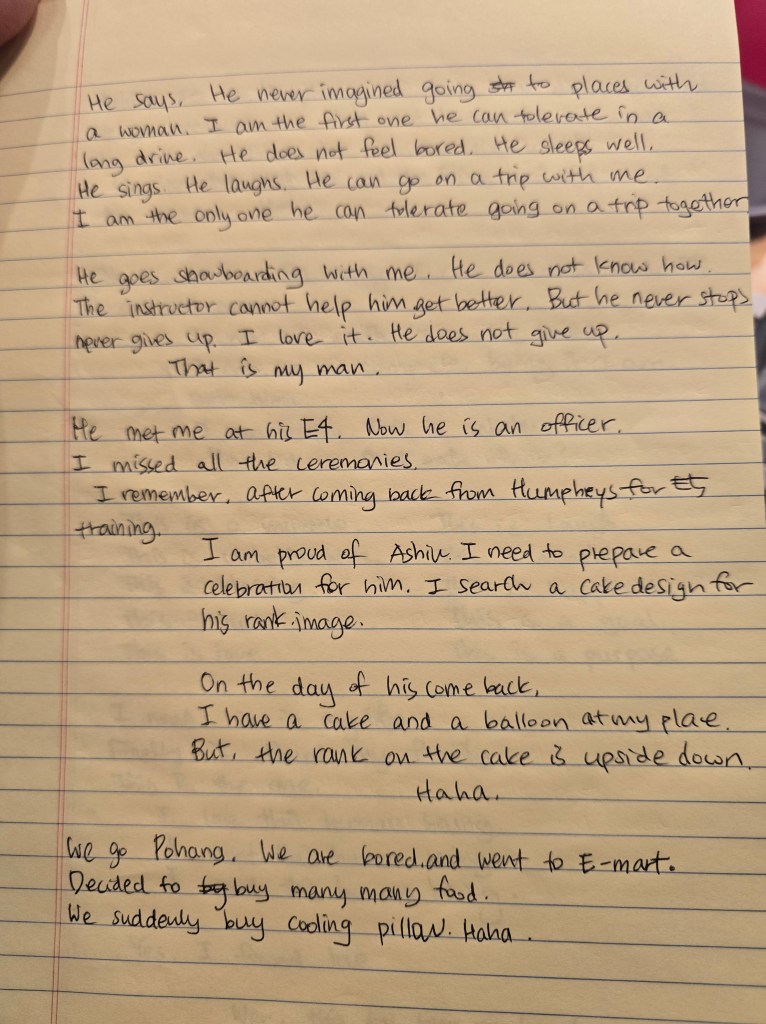 He says, He never imagined going to places with
a woman. I am the first one he can tolerate in a
long drive. He does not feel bored. He sleeps well.
He sings. He laughs. He can go on a trip with me.
I am the only one he can tolerate going on a trip together
He goes snowboarding with me. He does not know how.
The instructor cannot help him get better. But he never stops
never gives up. I love it. He does not give up.
That is my man.
He met me at his E4. Now he is an officer.
I missed all the ceremonies.
I remember, after coming back from Humpheys for
training.
I am proud of I need to prepare a
celebration for him. I search a cake design for
his rank.image.
On the day of his come back,
I have a cake and a balloon at my place.
But, the rank on the cake is upside down.
Haha.
We go Pohang. We are bored.and went to E-mart.
Decided to buy many many food.
We suddenly buy cooling pillow. Haha.